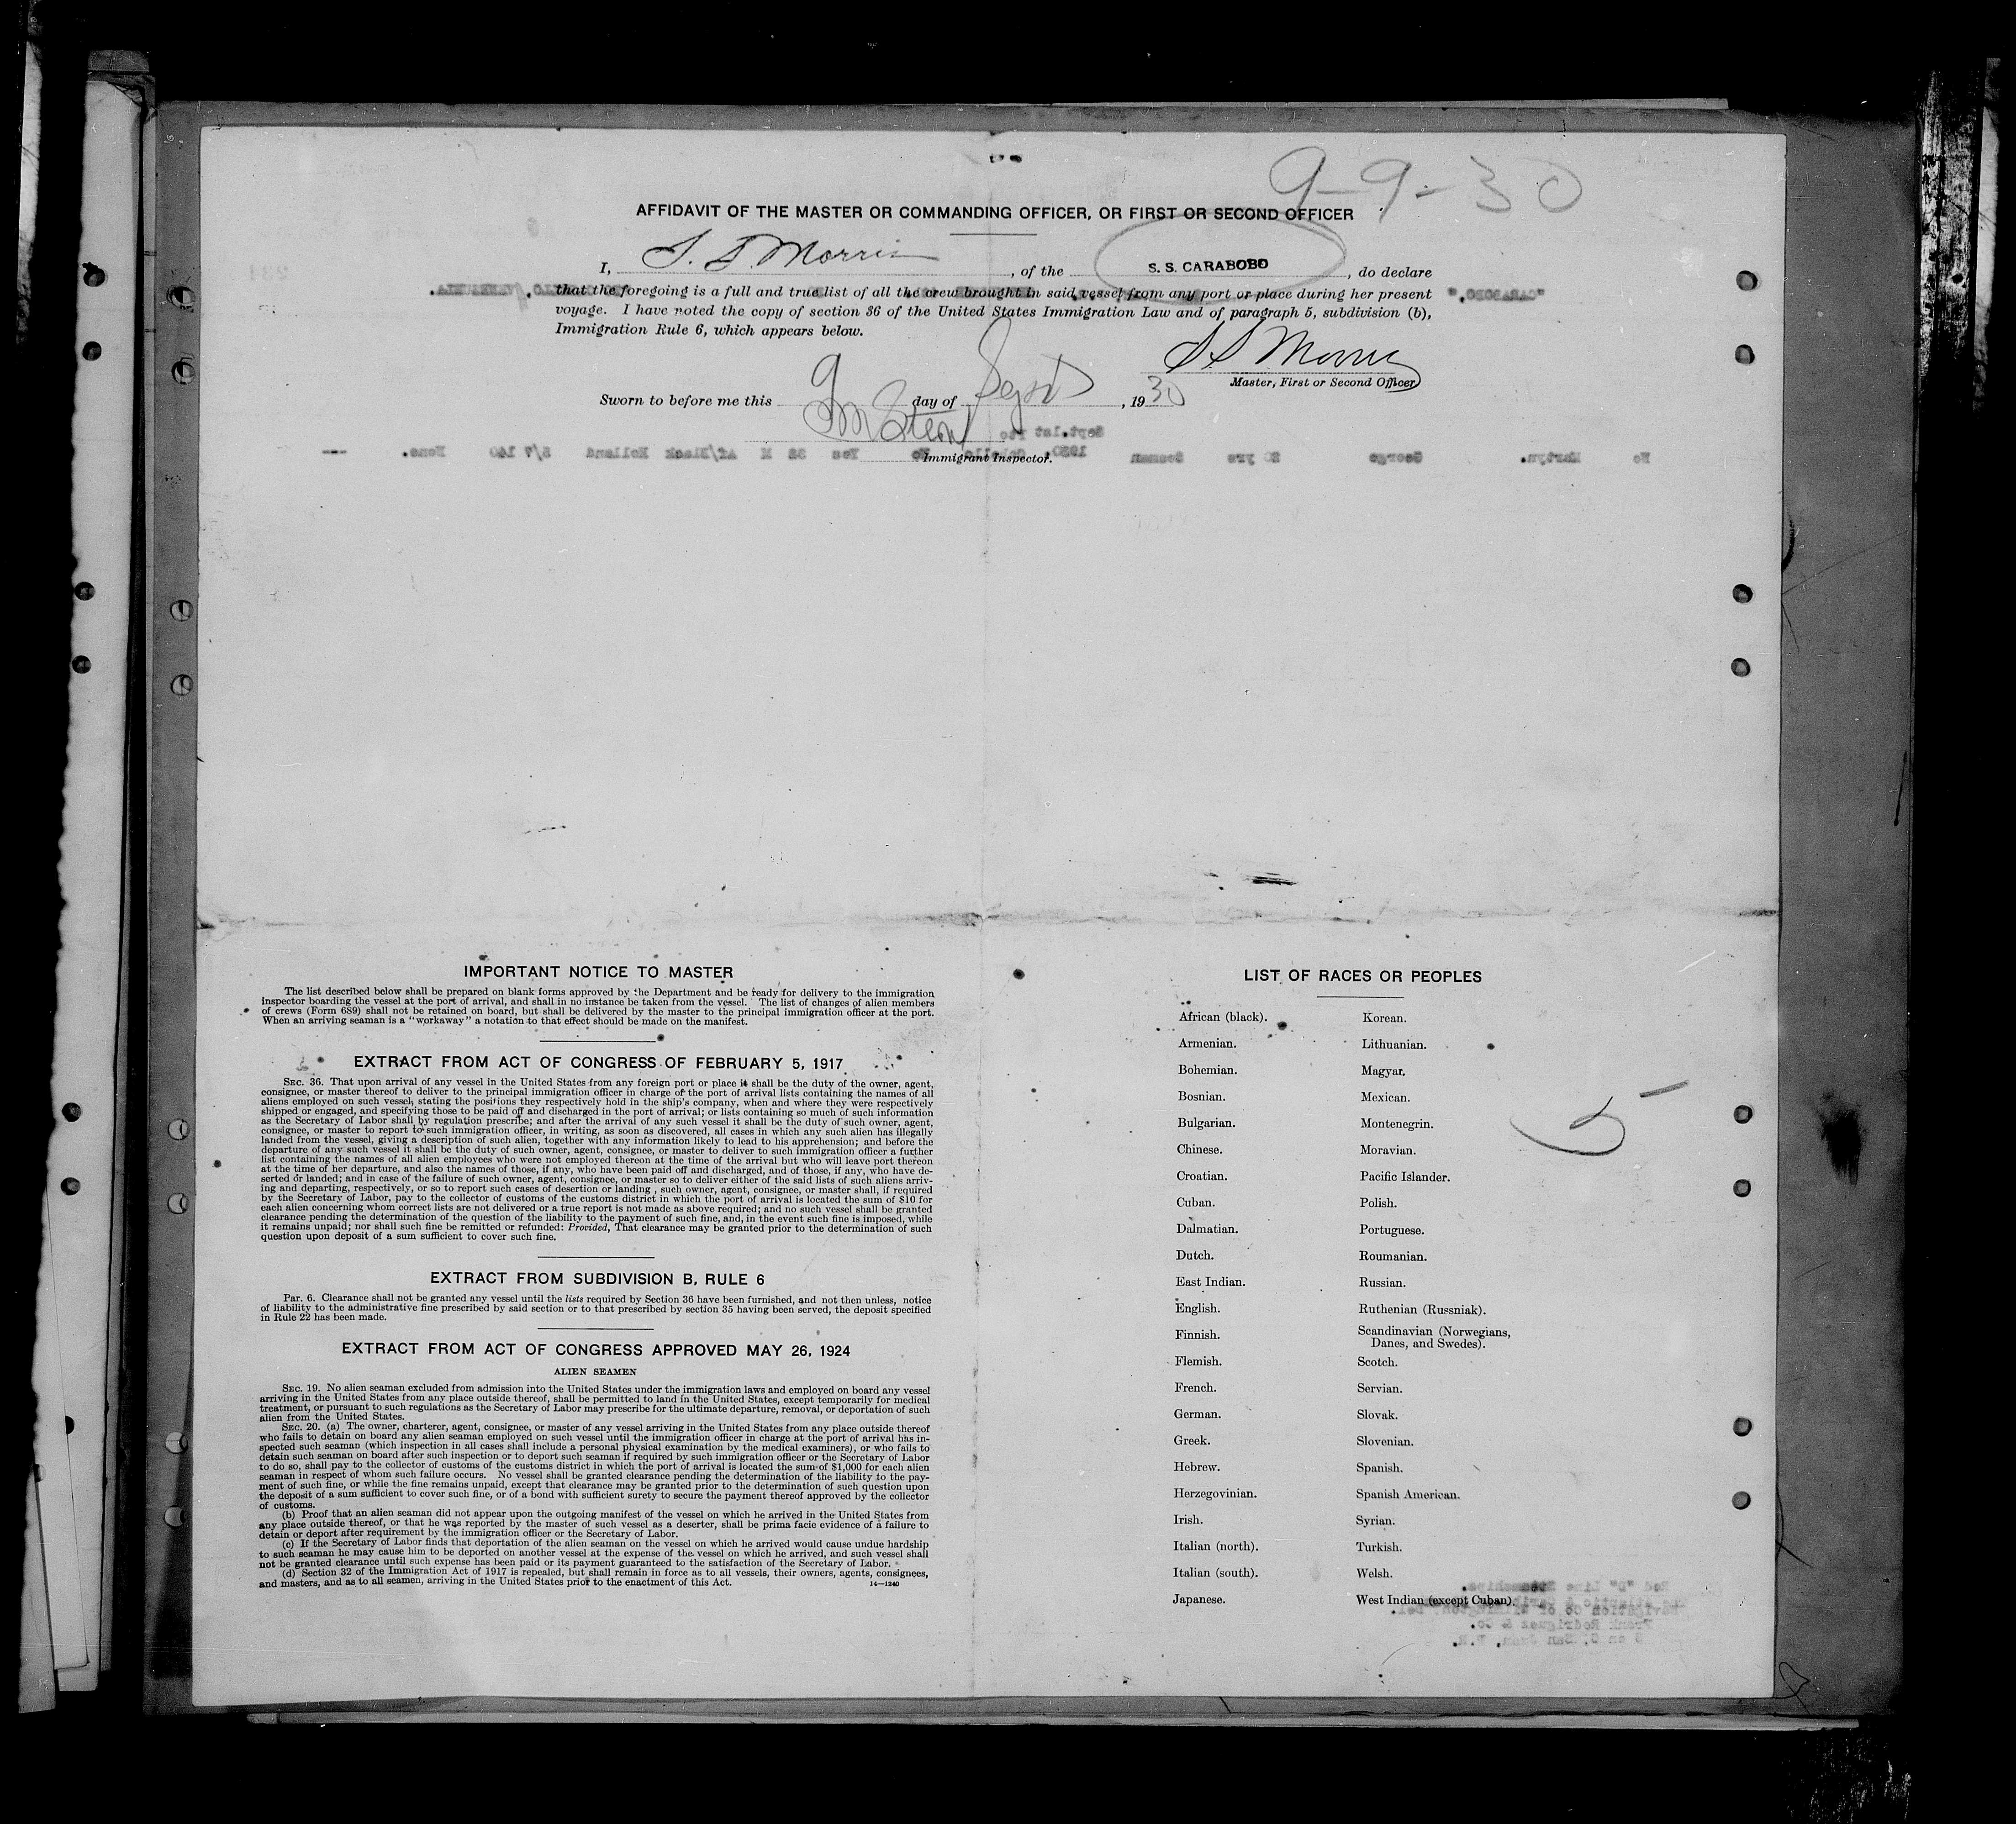 9-9-30
AFFIDAVIT OF THE MASTER OR COMMANDING OFFICER, OR FIRST OR SECOND OFFICER
I, S. S. Morris, of the S. S. CARABOBO, do declare
that the foregoing is a full and true list of all the crew brought in said vessel from any port or place during her present
voyage. I have noted the copy of section 36 of the United States Immigration Law and of paragraph 5, subdivision (b),
Immigration Rule 6, which appears below.
S S Morris
Master, First or Second Officer
Sworn to before me this 9 day of Sept, 1930
Immigrant Inspector.
IMPORTANT NOTICE TO MASTER
The list described below shall be prepared on blank forms approved by the Department and be ready for delivery to the immigration
inspector boarding the vessel at the port of arrival, and shall in no instance be taken from the vessel. The list of changes of alien members
of crews (Form 689) shall not be retained on board, but shall be delivered by the master to the principal immigration officer at the port.
When an arriving seaman is a "workaway" a notation to that effect should be made on the manifest.
EXTRACT FROM ACT OF CONGRESS OF FEBRUARY 5, 1917
SEC. 36. That upon arrival of any vessel in the United States from any foreign port or place it shall be the duty of the owner, agent,
consignee, or master thereof to deliver to the principal immigration officer in charge of the port of arrival lists containing the names of all
aliens employed on such vessel, stating the positions they respectively hold in the ship's company, when and where they were respectively
shipped or engaged, and specifying those to be paid off and discharged in the port of arrival; or lists containing so much of such information
as the Secretary of Labor shall by regulation prescribe; and after the arrival of any such vessel it shall be the duty of such owner, agent,
consignee, or master to report to such immigration officer, in writing, as soon as discovered, all cases in which any such alien has illegally
landed from the vessel, giving a description of such alien, together with any information likely to lead to his apprehension; and before the
departure of any such vessel it shall be the duty of such owner, agent, consignee, or master to deliver to such immigration officer a further
list containing the names of all alien employees who were not employed thereon at the time of the arrival but who will leave port thereon
at the time of her departure, and also the names of those, if any, who have been paid off and discharged, and of those, if any, who have de-
serted or landed; and in case of the failure of such owner, agent, consignee, or master so to deliver either of the said lists of such aliens arriv-
ing and departing, respectively, or so to report such cases of desertion or landing, such owner, agent, consignee, or master shall, if required
by the Secretary of Labor, pay to the collector of customs of the customs district in which the port of arrival is located the sum of $10 for
each alien concerning whom correct lists are not delivered or a true report is not made as above required; and no such vessel shall be granted
clearance pending the determination of the question of the liability to the payment of such fine, and, in the event such fine is imposed, while
it remains unpaid; nor shall such fine be remitted or refunded: Provided, That clearance may be granted prior to the determination of such
question upon deposit of a sum sufficient to cover such fine.
EXTRACT FROM SUBDIVISION B, RULE 6
PAR. 6. Clearance shall not be granted any vessel until the lists required by Section 36 have been furnished, and not then unless, notice
of liability to the administrative fine prescribed by said section or to that prescribed by section 35 having been served, the deposit specified
in Rule 22 has been made.
EXTRACT FROM ACT OF CONGRESS APPROVED MAY 26, 1924
ALIEN SEAMEN
SEC. 19. No alien seaman excluded from admission into the United States under the immigration laws and employed on board any vessel
arriving in the United States from any place outside thereof, shall be permitted to land in the United States, except temporarily for medical
treatment, or pursuant to such regulations as the Secretary of Labor may prescribe for the ultimate departure, removal, or deportation of such
alien from the United States.
SEC. 20. (a) The owner, charterer, agent, consignee, or master of any vessel arriving in the United States from any place outside thereof
who fails to detain on board any alien seaman employed on such vessel until the immigration officer in charge at the port of arrival has in-
spected such seaman (which inspection in all cases shall include a personal physical examination by the medical examiners), or who fails to
detain such seaman on board after such inspection or to deport such seaman if required by such immigration officer or the Secretary of Labor
to do so, shall pay to the collector of customs of the customs district in which the port of arrival is located the sum of $1,000 for each alien
seaman in respect of whom such failure occurs. No vessel shall be granted clearance pending the determination of the liability to the pay-
ment of such fine, or while the fine remains unpaid, except that clearance may be granted prior to the determination of such question upon
the deposit of a sum sufficient to cover such fine, or of a bond with sufficient surety to secure the payment thereof approved by the collector
of customs.
(b) Proof that an alien seaman did not appear upon the outgoing manifest of the vessel on which he arrived in the United States from
any place outside thereof, or that he was reported by the master of such vessel as a deserter, shall be prima facie evidence of a failure to
detain or deport after requirement by the immigration officer or the Secretary of Labor.
(c) If the Secretary of Labor finds that deportation of the alien seaman on the vessel on which he arrived would cause undue hardship
to such seaman he may cause him to be deported on another vessel at the expense of the vessel on which he arrived, and such vessel shall
not be granted clearance until such expense has been paid or its payment guaranteed to the satisfaction of the Secretary of Labor.
(d) Section 32 of the Immigration Act of 1917 is repealed, but shall remain in force as to all vessels, their owners, agents, consignees,
and masters, and as to all seamen, arriving in the United States prior to the enactment of this Act.
14—1240
LIST OF RACES OR PEOPLES
African (black). Korean.
Armenian. Lithuanian.
Bohemian. Magyar.
Bosnian. Mexican.
Bulgarian. Montenegrin.
Chinese. Moravian.
Croatian. Pacific Islander.
Cuban. Polish.
Dalmatian. Portuguese.
Dutch. Roumanian.
East Indian. Russian.
English. Ruthenian (Russniak).
Finnish. Scandinavian (Norwegians,
Danes, and Swedes).
Flemish. Scotch.
French. Servian.
German. Slovak.
Greek. Slovenian.
Hebrew. Spanish.
Herzegovinian. Spanish American.
Irish. Syrian.
Italian (north). Turkish.
Italian (south). Welsh.
Japanese. West Indian (except Cuban).